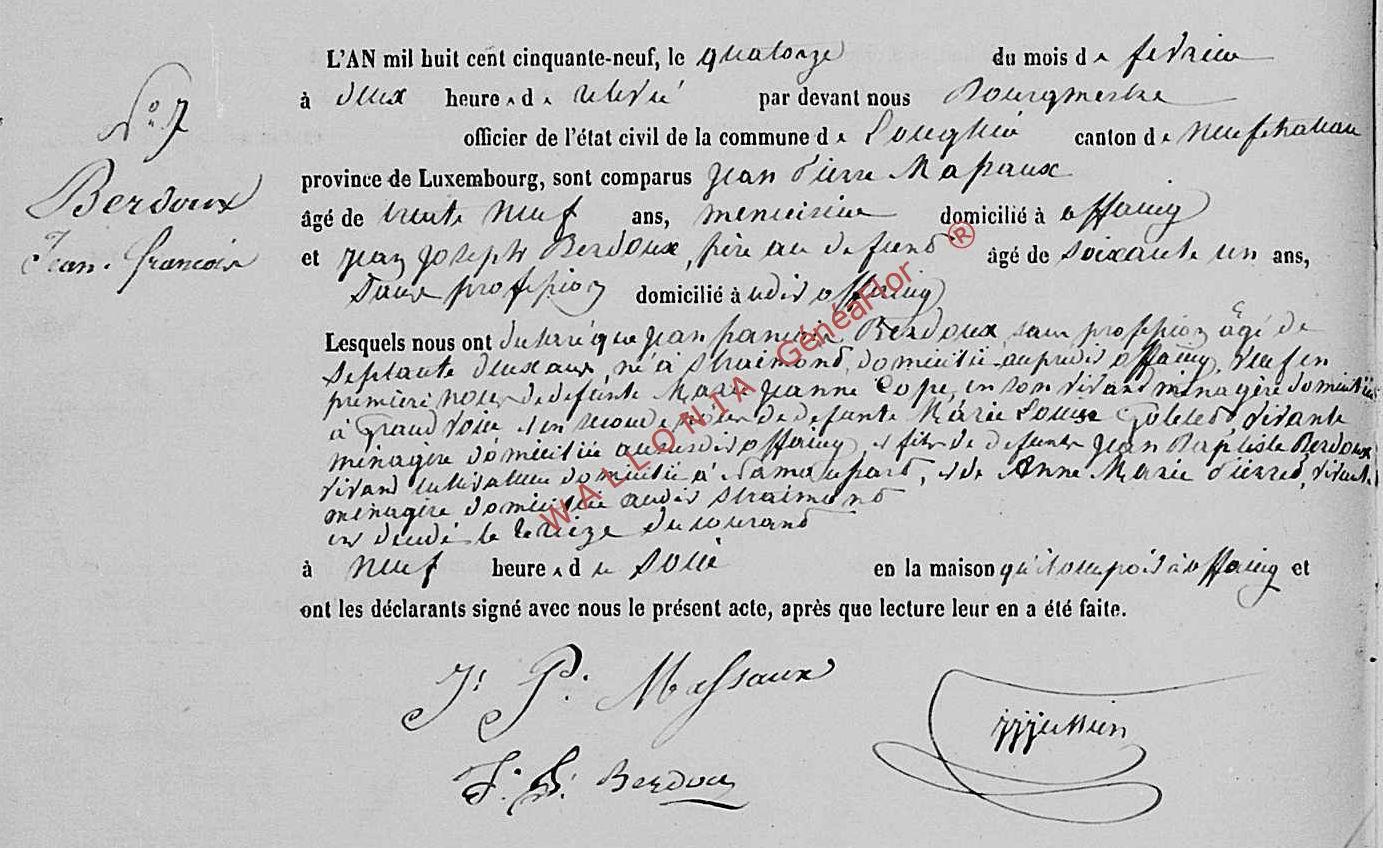 N° 7
Berdoux
Jean-François
L'AN mil huit cent cinquante-neuf, le quatorze du mois de fevrier
à deux heures de relevé par devant nous Bourgmestre
officier de l'état civil de la commune de Longlier canton de Neufchateau
province de Luxembourg, sont comparus Jean Pierre Massaux
âgé de trente neuf ans, menuisier domicilié à offaing
et Jean Joseph Berdoux, frère au defunt âgé de soixante un ans,
Sans profession domicilié à udit offaing
Lesquels nous ont declaré que Jean francois Berdoux, sans profession âgé de
septante deux ans, né à Straimont, domicilié au predit offaing, veuf en
premiere noces de defunte Marie Jeanne Cope, en son vivant ménagère domiciliée
à Grandvoir et en seconde noces de defunte Marie Louise Golet, vivante
ménagère domiciliée au susdit offaing, et fils de defunts Jean Baptiste Berdoux
vivant cultivateur domicilié à et de Anne Marie Pierret, vivante
ménagère domiciliée audit Straimont
est decedé le treize du courant
à neuf heures du soir en la maison qu'il occupoit à offaing et
ont les déclarants signé avec nous le présent acte, après que lecture leur en a été faite.
J. P. Massaux
J. J. Berdoux
WALLONIA GénéaFlor ®